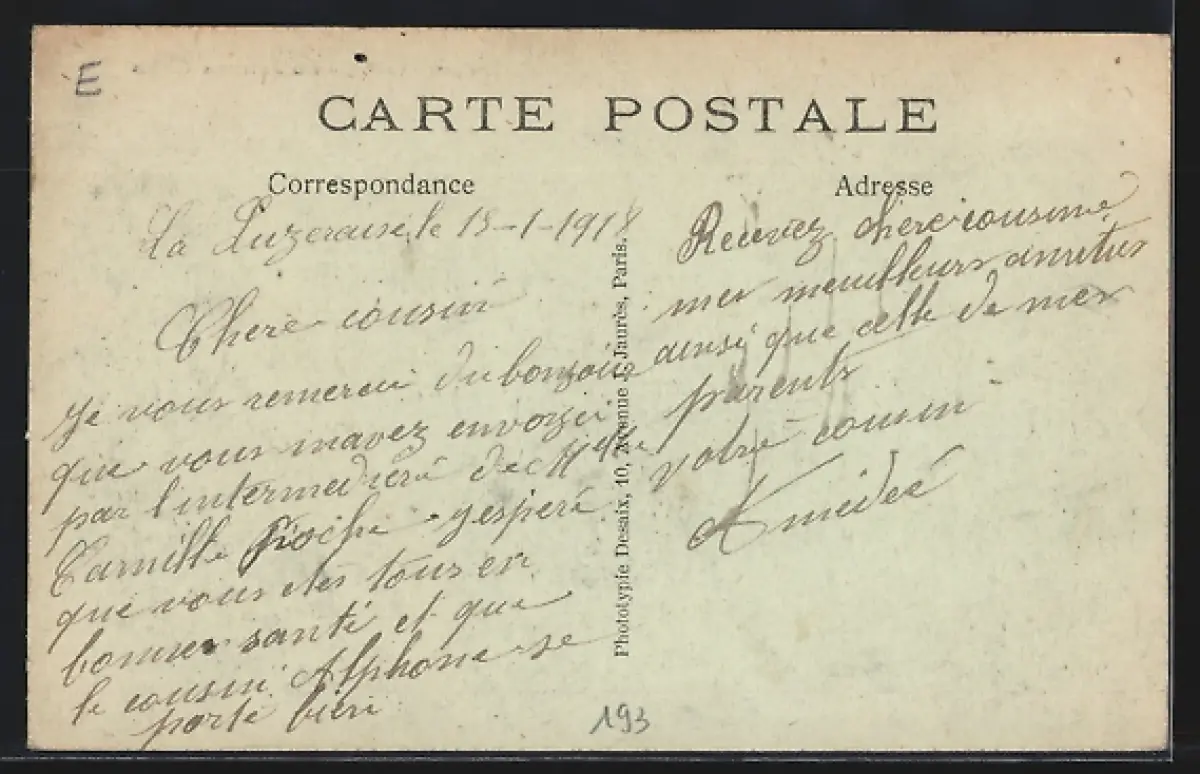 E
CARTE POSTALE
Correspondance
La Luzeraise, le 13-1-1918
Chere cousine
Je vous remercie du bonjour
que vous mavez envoyer
par l'intermediere de Melle
Camille Pioche. yespere
que vous etes tous en
bonne santé et que
le cousin Alphonse se
porte bien
Photolypie Desaix, 10, Avenue J. Jaurès, Paris.
Adresse
Recevez chere cousine
mes meuilleurs amities
ainsi que celle de mes
parents
votre cousin
Amédeé
193